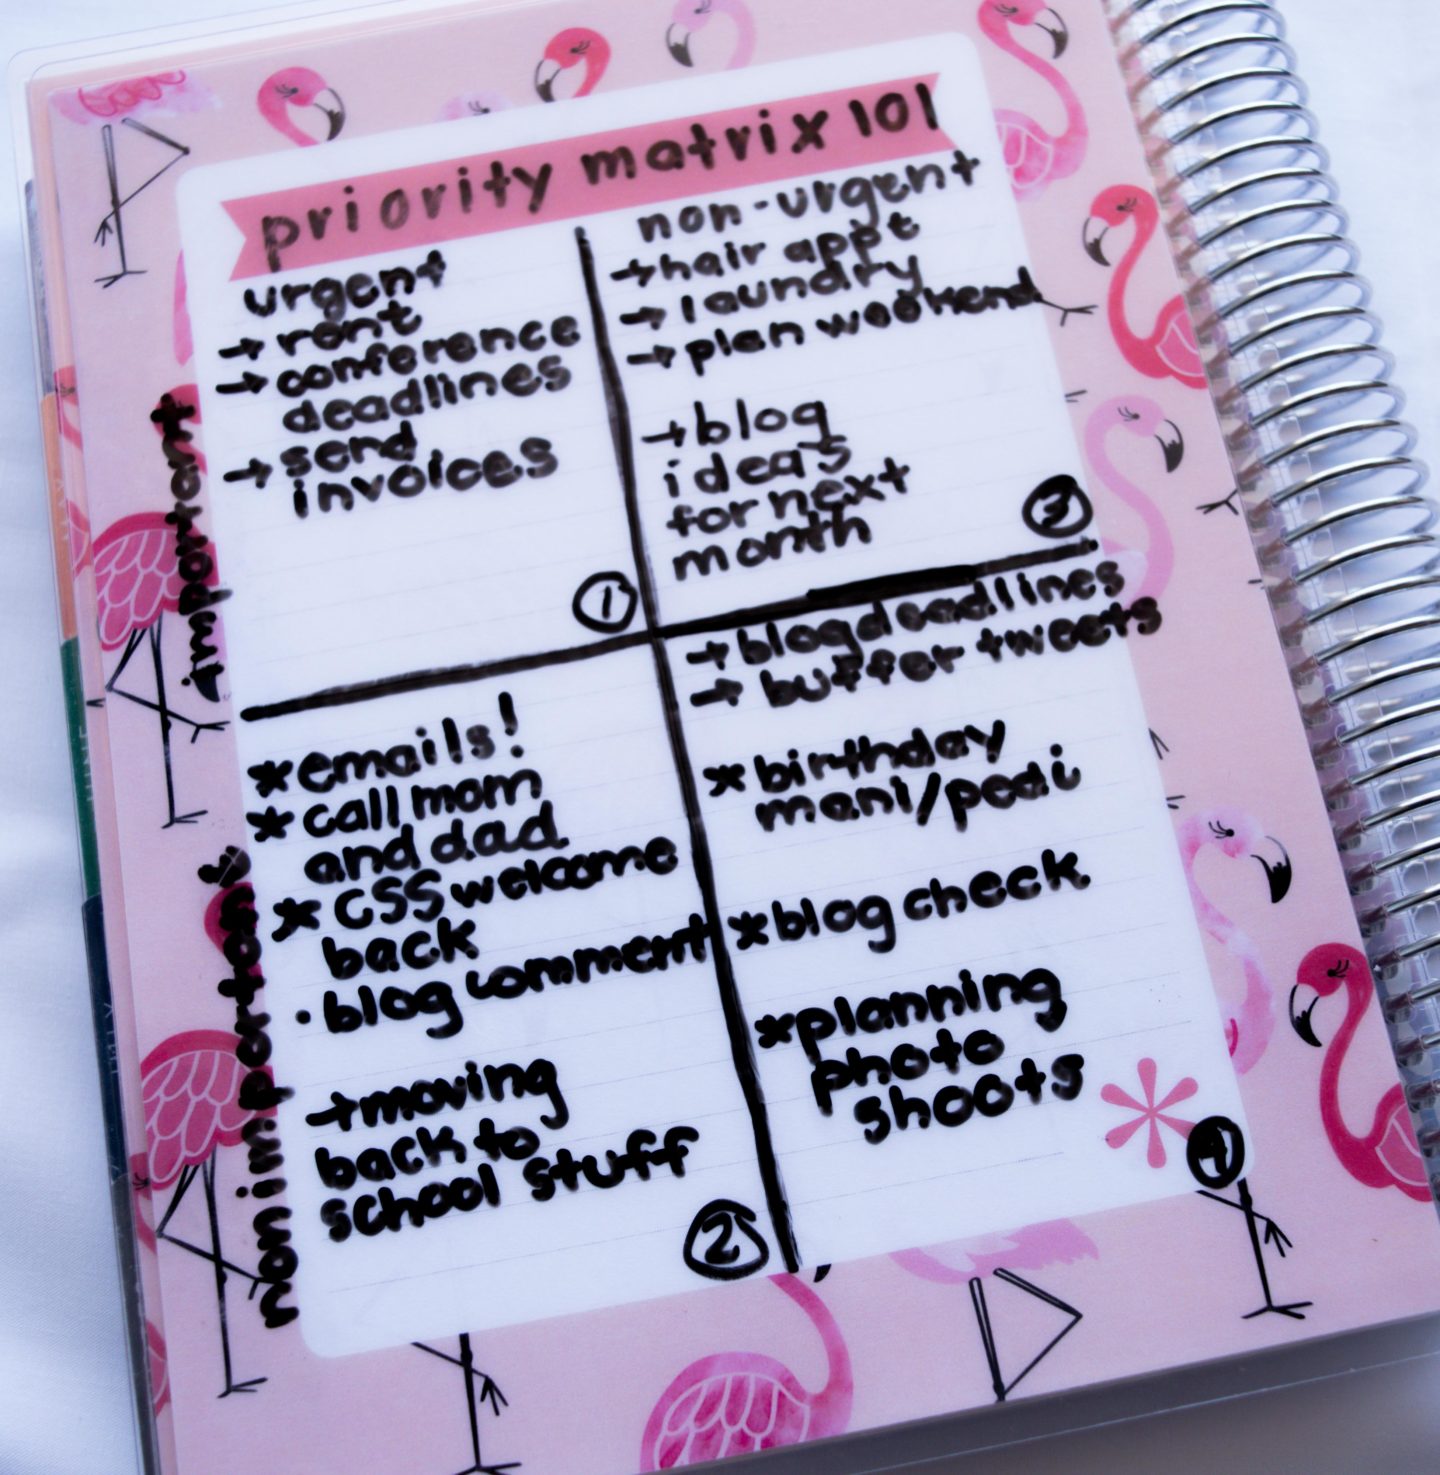 priority matrix 101
urgent
→ rent
→ conference
deadlines
→ send
invoices
1
non-urgent
→ hair appt
→ laundry
→ plan weekend
→ blog
ideas
for next
month
3
important
* emails!
* call mom
and dad
* CSS welcome
back
• blog comment
→ moving
back to
school stuff
2
→ blog deadlines
→ buffer tweets
* birthday
mani/pedi
* blog check
* planning
photo
shoots
4
non important
JUNE